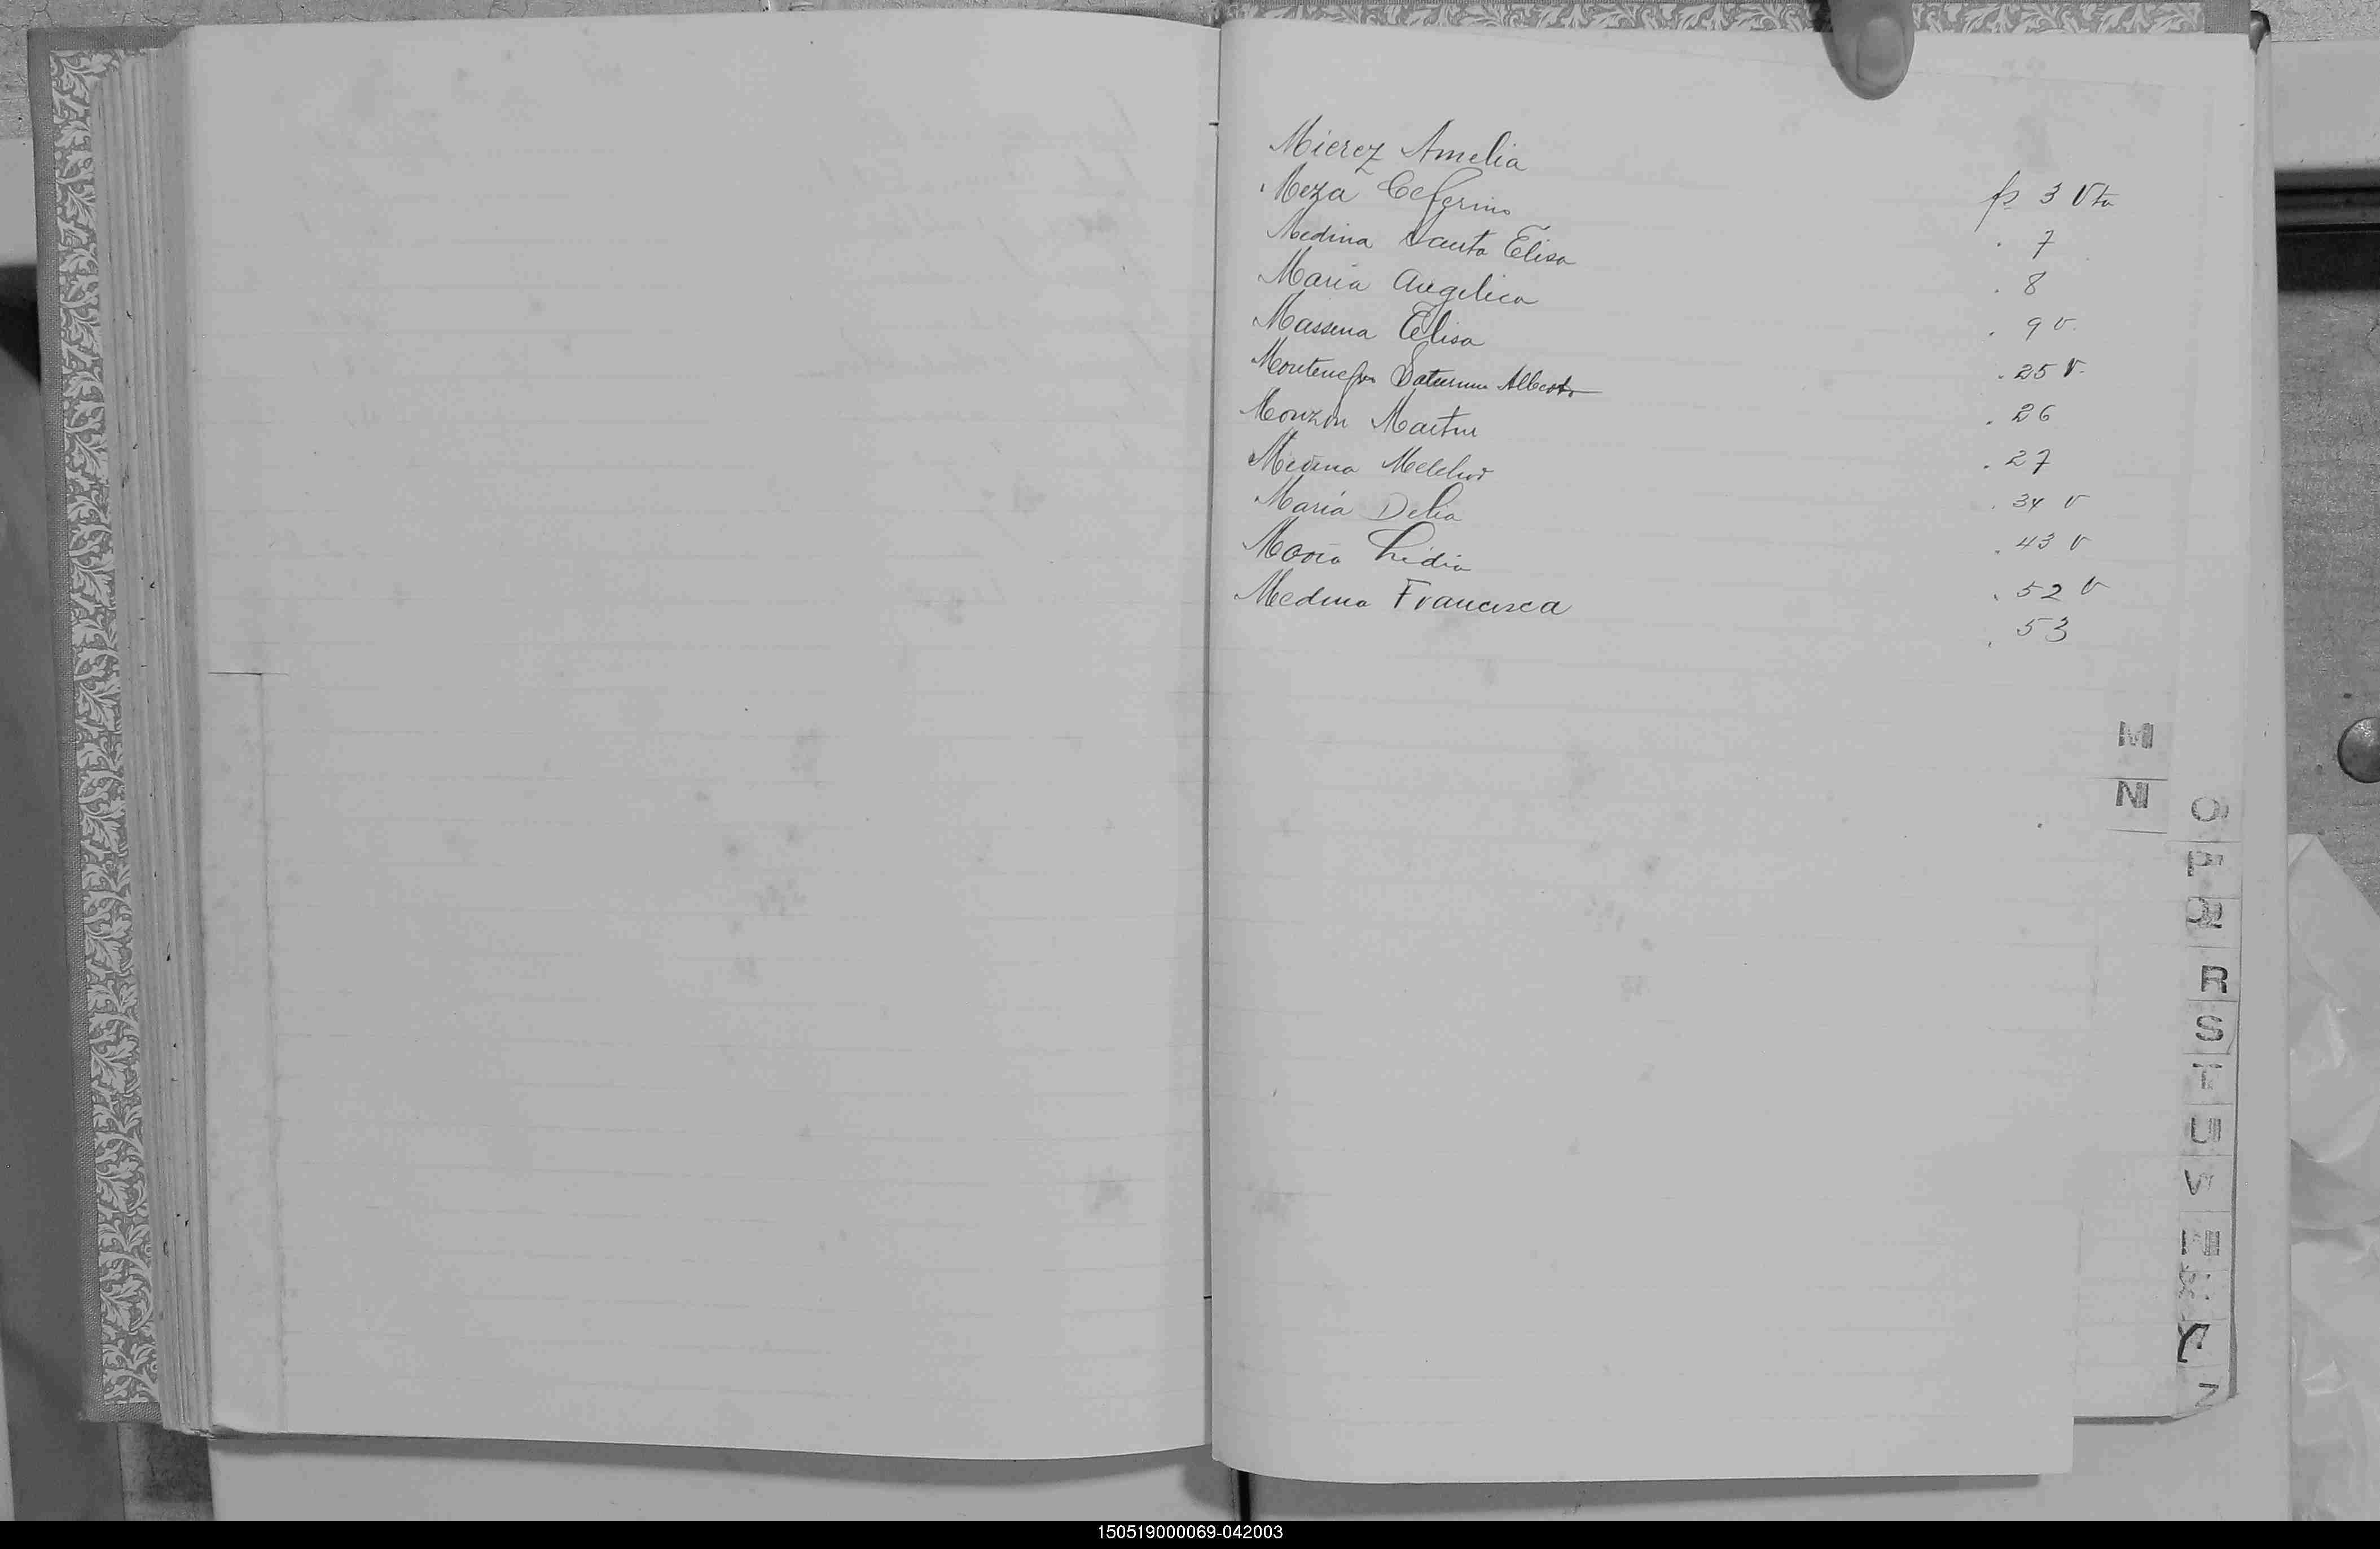 Mierez Amelia fs 3 Vta
Meza Ceferino . 7
Medina Santa Elisa . 8
Maria Angelica . 9 v.
Massena Elisa . 25 v.
Montenegro Saturnino Alberto . 26
Monzon Martin . 27
Medina Melchor . 34 v
María Delia . 43 v
Maria Lidia . 52 v
Medina Francisca . 53
M
N
O
P
Q
R
S
T
U
V
Y
Z
150519000069-042003